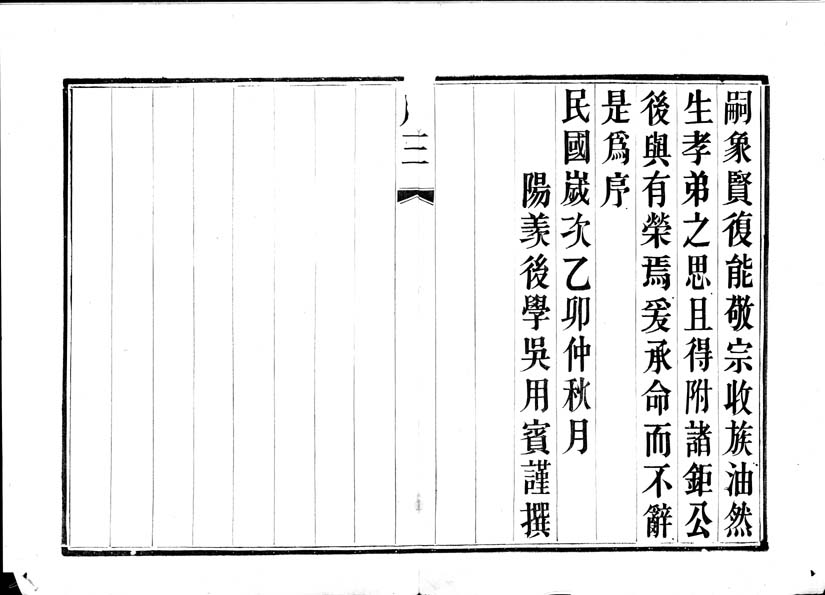 嗣象賢復能敬宗收族油然
生孝弟之思且得附諸鉅公
後與有榮焉爰承命而不辭
是爲序
民國歲次乙卯仲秋月
陽羨後學吳用賓謹撰
三